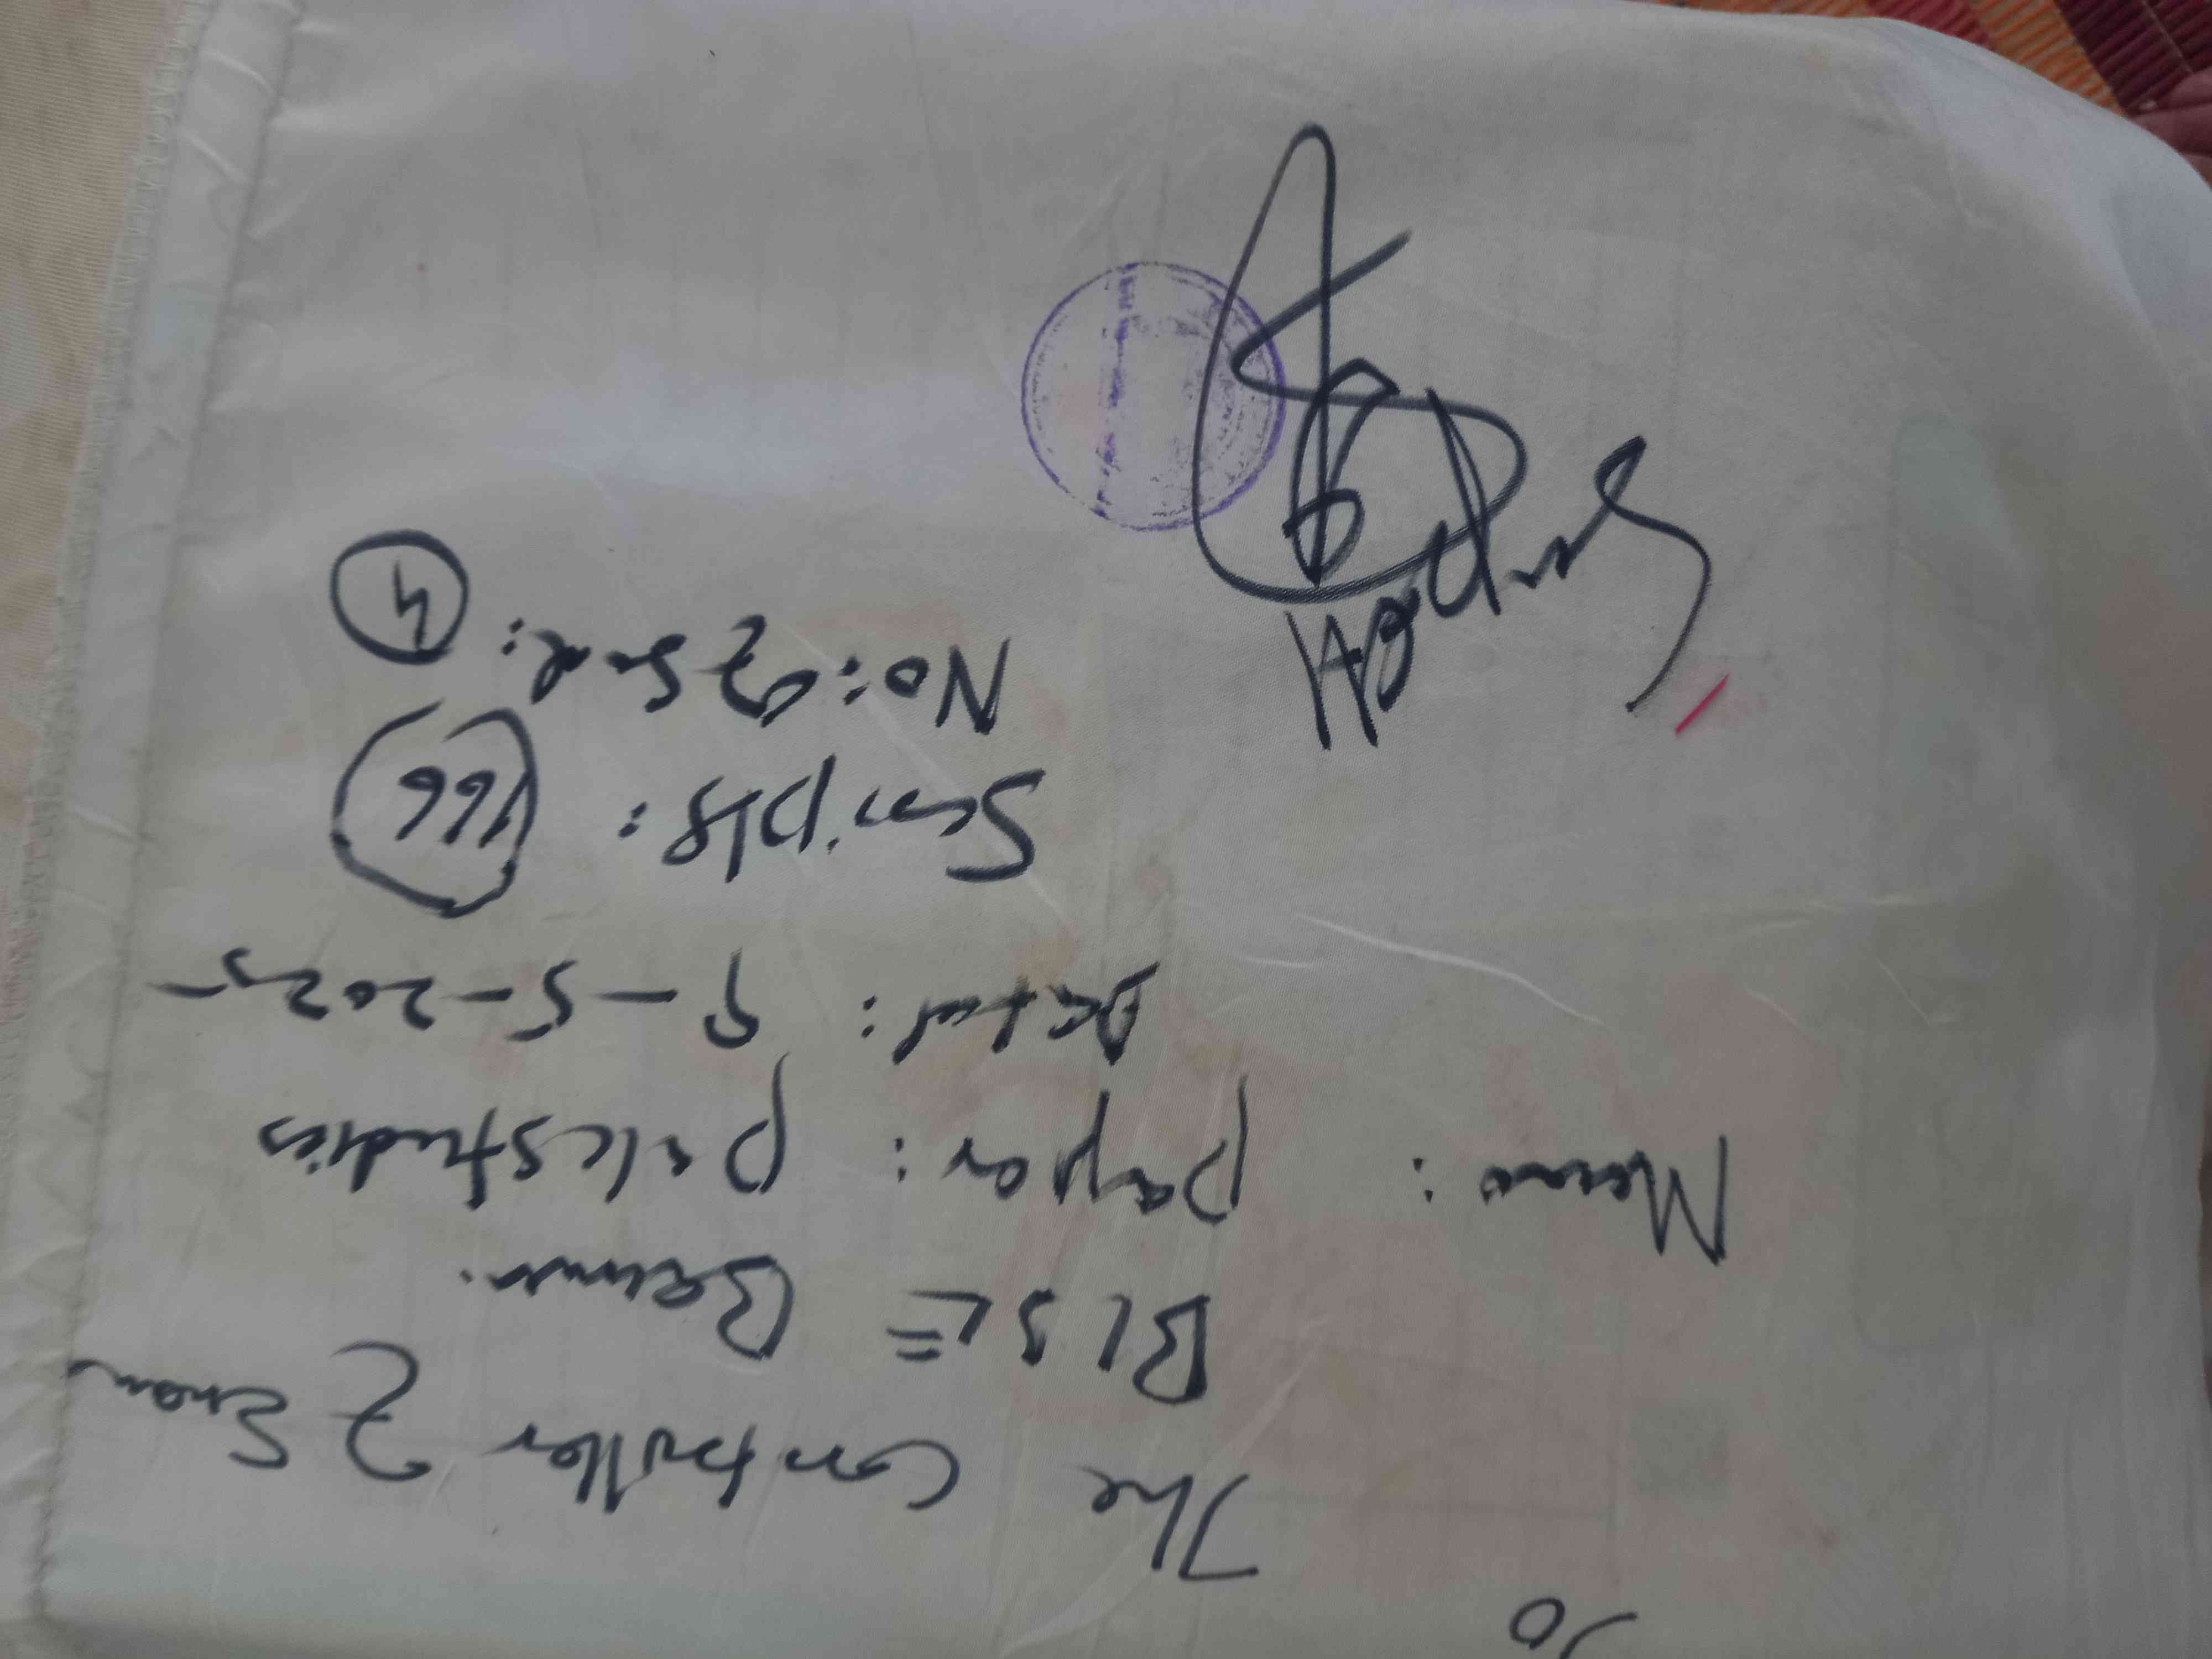 To
The Controller of Exam
BISE Bannu.
Memo: paper: pakstudies
Dated: 9-5-2025
Scripts: 166
No: of Seal: 4